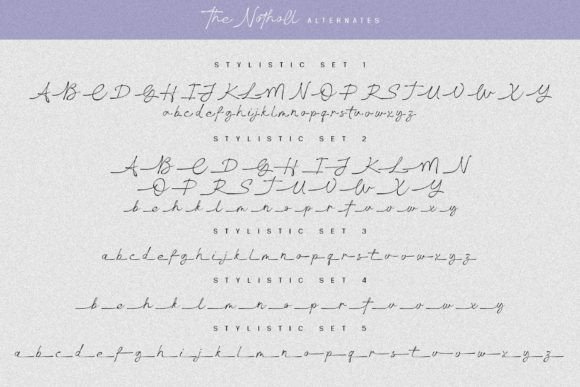 The Notholl ALTERNATES
STYLISTIC SET 1
A B C D G H I J K L M N O P R S T U V W X Y
a b c d e f g h i j k l m n o p q r s t u v w x y z
STYLISTIC SET 2
A B C D G H I J K L M N
O P R S T U V W X Y
b e h k l m n o p r t v o w x y
STYLISTIC SET 3
a b c d e f g h i j k l m n o p q r s t u v w x y z
STYLISTIC SET 4
b e h k l m n o p r t v o w x y
STYLISTIC SET 5
a b c d e f g h i j k l m n o p q r s t u v w x y z